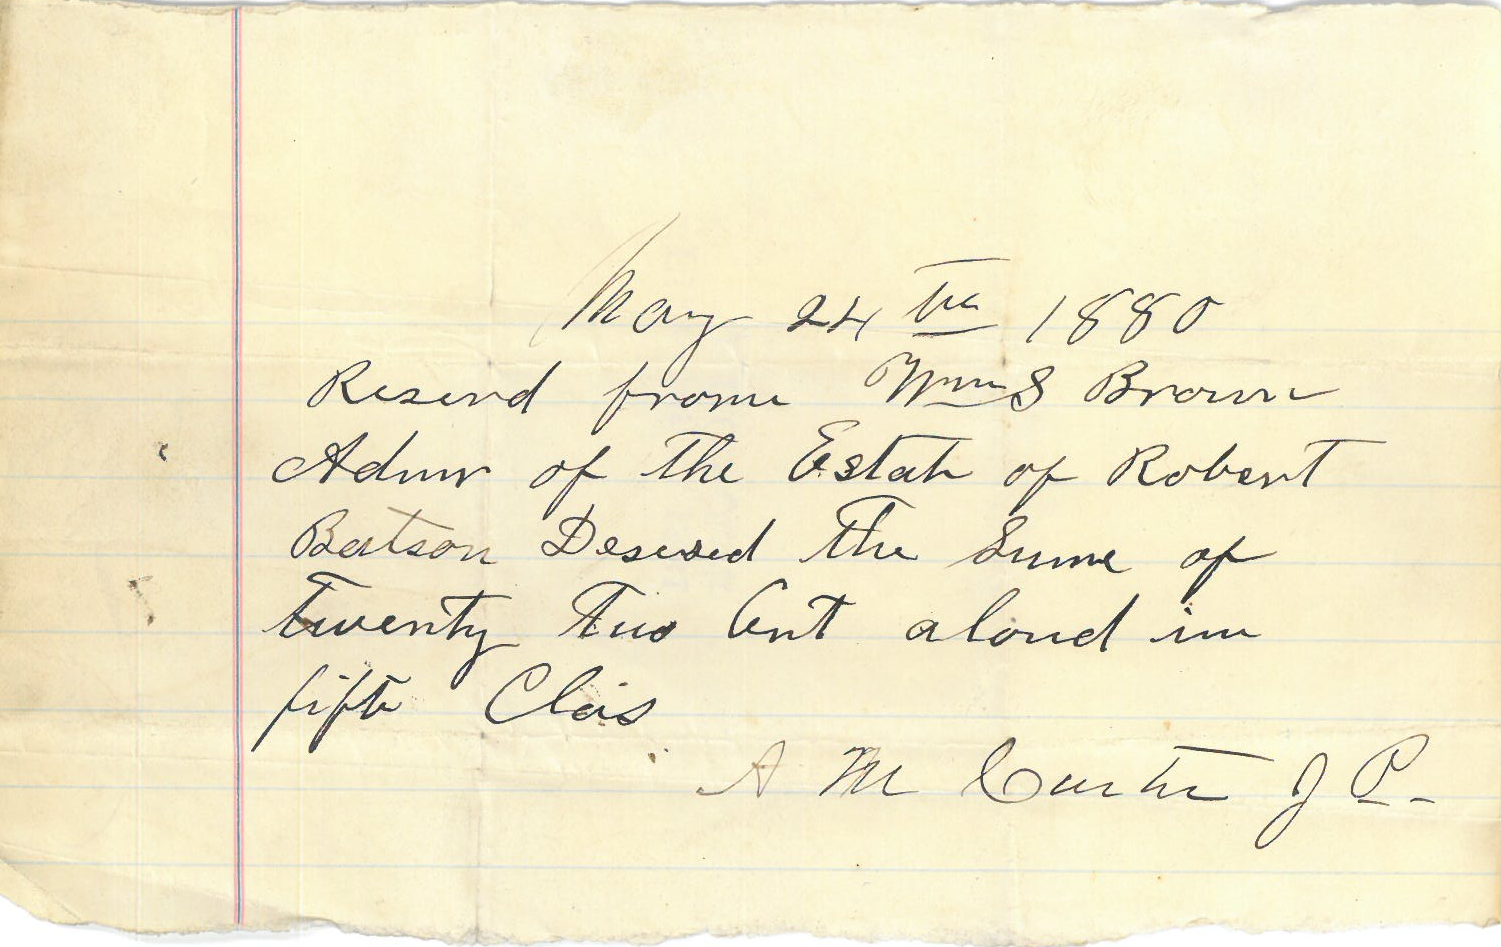 May 24th 1880
Reserd frome Wm S Brown
Admr of the Estate of Robert
Batson Desesed the Sume of
Twenty Two Cent aloud in
fifth Clas
A M Carter J P